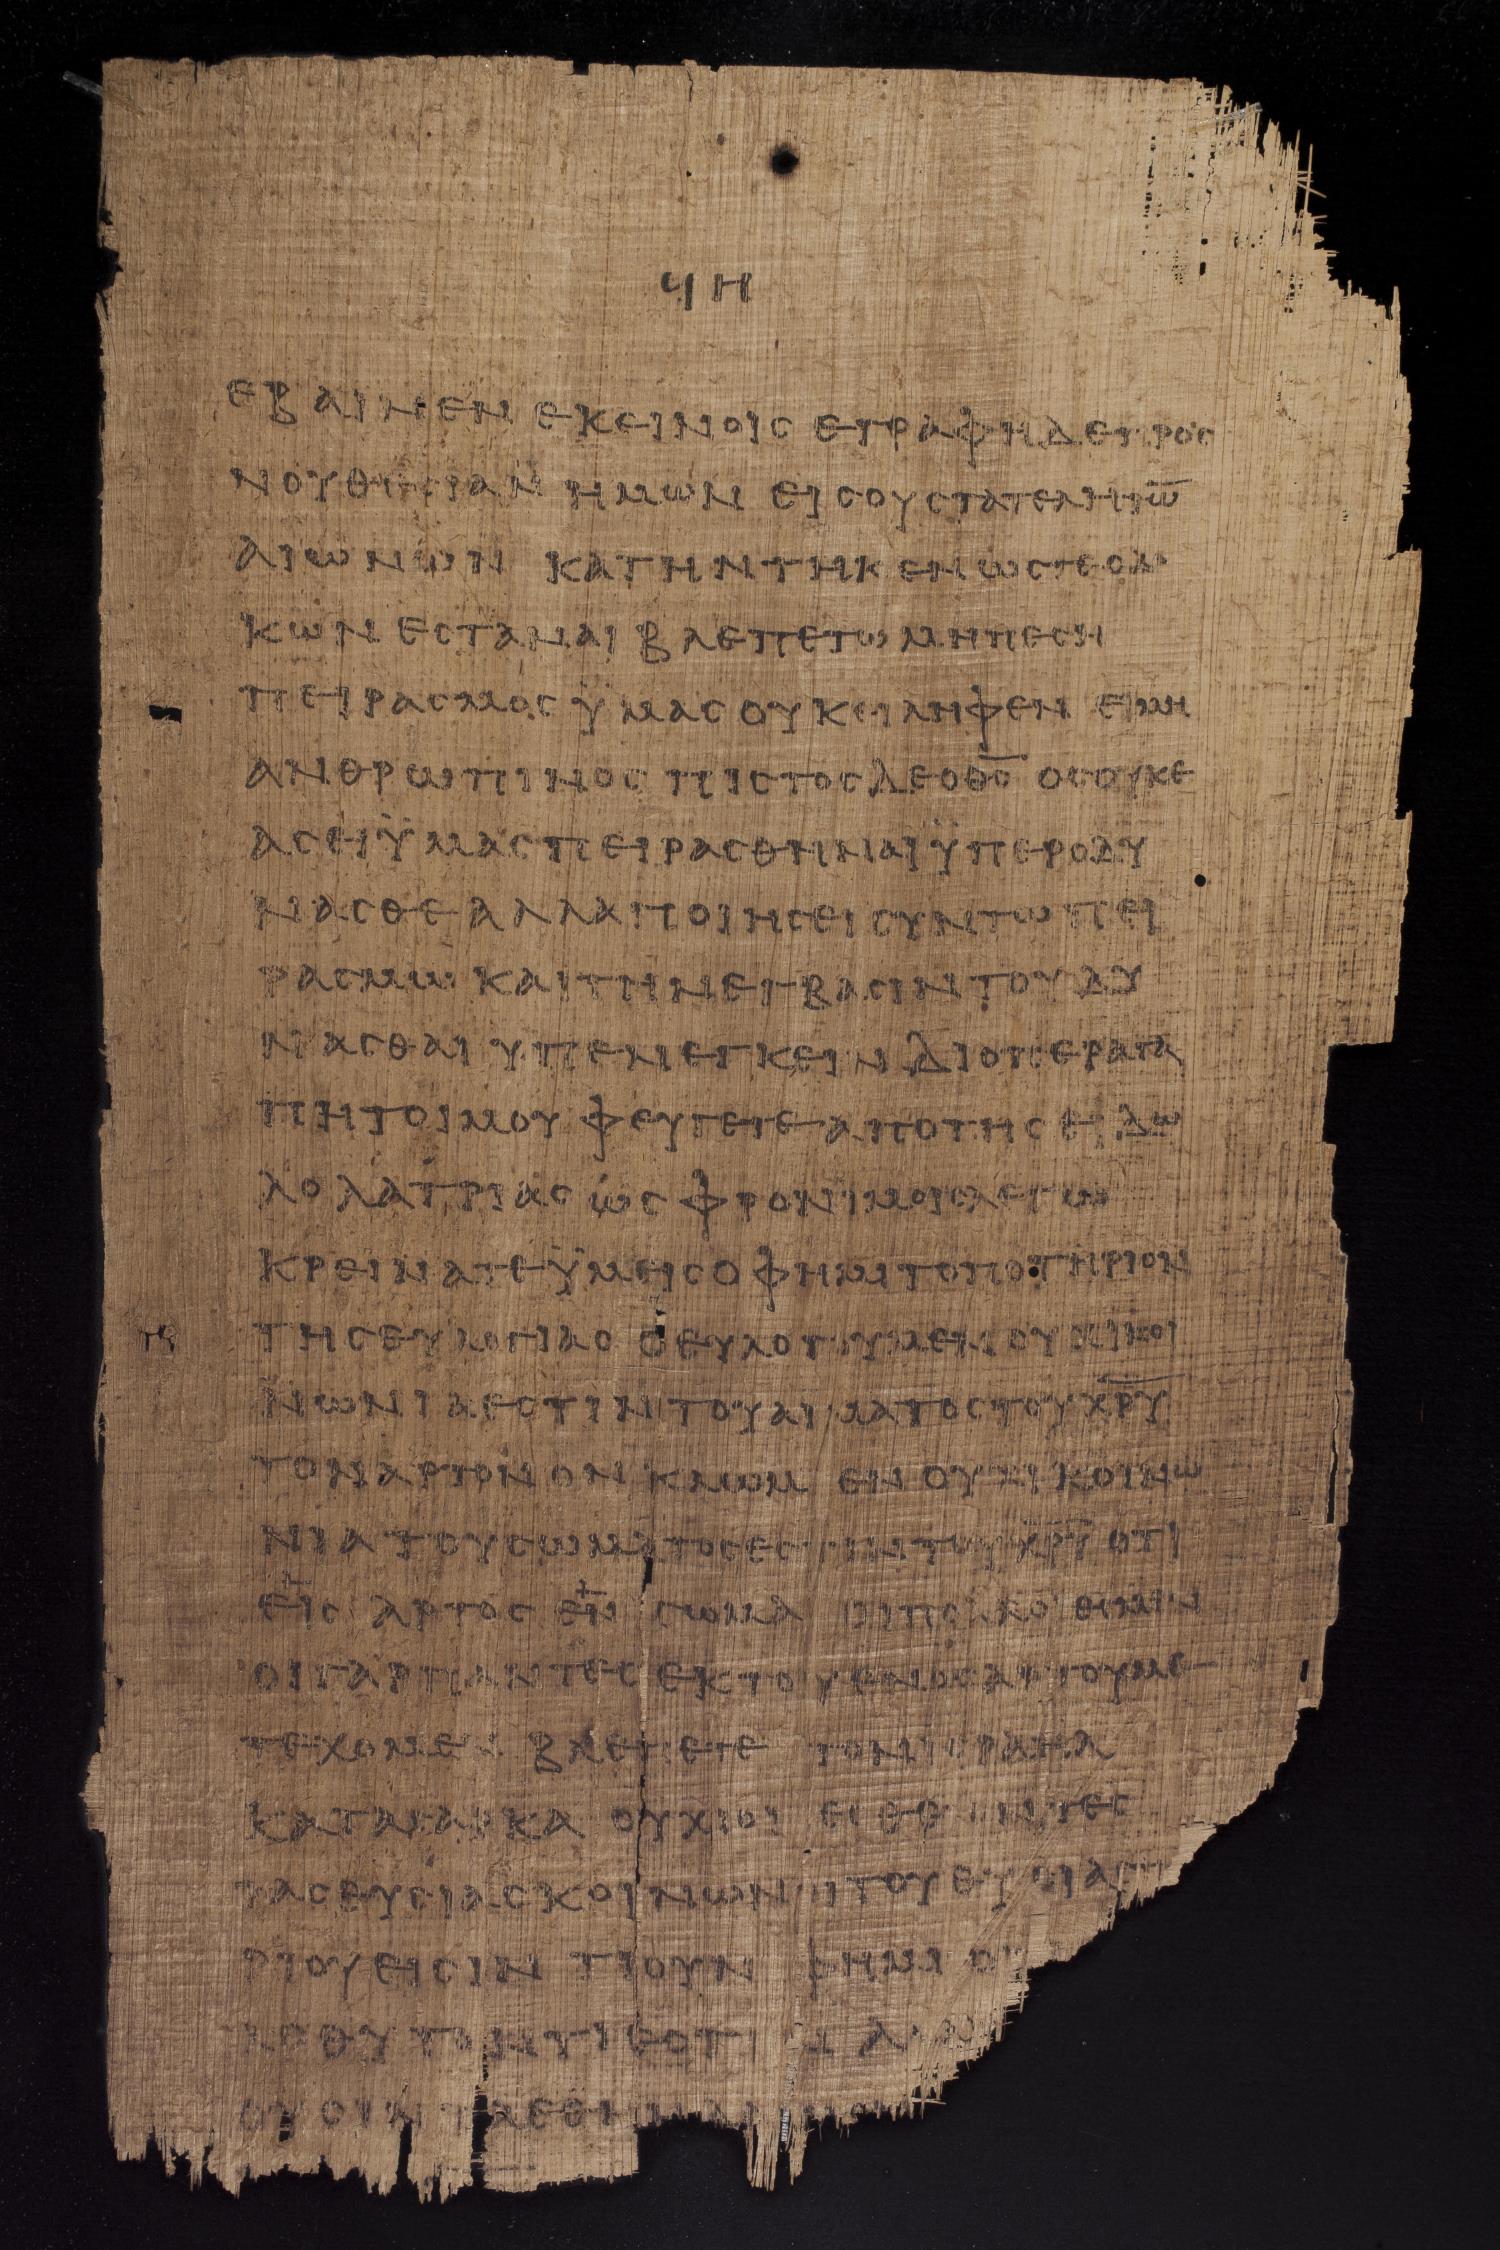 ϤΗ
ΕΒΑΙΝΕΝ ΕΚΕΙΝΟΙϹ ΕΓΡΑΦΗ ΔΕ ΠΡΟϹ
ΝΟΥΘΕϹΙΑΝ ΗΜΩΝ ΕΙϹ ΟΥϹ ΤΑ ΤΕΛΗ ΤΩ̅
ΑΙΩΝΩΝ ΚΑΤΗΝΤΗΚΕΝ ΩϹΤΕ Ο ΔΟ
ΚΩΝ ΕϹΤΑΝΑΙ ΒΛΕΠΕΤΩ ΜΗ ΠΕϹΗ
ΠΕΙΡΑϹΜΟϹ ΫΜΑϹ ΟΥΚ ΕΙΛΗΦΕΝ ΕΙ ΜΗ
ΑΝΘΡΩΠΙΝΟϹ ΠΙϹΤΟϹ ΔΕ Ο Θ̅Ϲ̅ ΟϹ ΟΥΚ Ε
ΑϹΕΙ ΫΜΑϹ ΠΕΙΡΑϹΘΗΝΑΙ ΫΠΕΡ Ο ΔΥ
ΝΑϹΘΕ ΑΛΛΑ ΠΟΙΗϹΕΙ ϹΥΝ ΤΩ ΠΕΙ
ΡΑϹΜΩ ΚΑΙ ΤΗΝ ΕΓΒΑϹΙΝ ΤΟΥ ΔΥ
ΝΑϹΘΑΙ ΥΠΕΝΕΓΚΕΙΝ ΔΙΟΠΕΡ ΑΓΑ
ΠΗΤΟΙ ΜΟΥ ΦΕΥΓΕΤΕ ΑΠΟ ΤΗϹ ΕΙΔΩ
ΛΟΛΑΤΡΙΑϹ ΩϹ ΦΡΟΝΙΜΟΙϹ ΛΕΓΩ
ΚΡΕΙΝΑΤΕ ΫΜΕΙϹ Ο ΦΗΜΙ ΤΟ ΠΟΤΗΡΙΟΝ
ΤΗϹ ΕΥΛΟΓΙΑϹ Ο ΕΥΛΟΓΟΥΜΕΝ ΟΥΧΙ ΚΟΙ
ΝΩΝΙΑ ΕϹΤΙΝ ΤΟΥ ΑΙΜΑΤΟϹ ΤΟΥ Χ̅Ρ̅Υ̅
ΤΟΝ ΑΡΤΟΝ ΟΝ ΚΛΩΜΕΝ ΟΥΧΙ ΚΟΙΝΩ
ΝΙΑ ΤΟΥ ϹΩΜΑΤΟϹ ΕϹΤΙΝ ΤΟΥ Χ̅Ρ̅Υ̅ ΟΤΙ
ΕΙϹ ΑΡΤΟϹ ΕΝ ϹΩΜΑ ΟΙ ΠΟΛΛΟΙ ΕϹΜΕΝ
ΟΙ ΓΑΡ ΠΑΝΤΕϹ ΕΚ ΤΟΥ ΕΝΟϹ ΑΡΤΟΥ ΜΕ
ΤΕΧΟΜΕΝ ΒΛΕΠΕΤΕ ΤΟΝ ΙϹΡΑΗΛ
ΚΑΤΑ ϹΑΡΚΑ ΟΥΧΙ ΟΙ ΕϹΘΙΟΝΤΕϹ
ΤΑϹ ΘΥϹΙΑϹ ΚΟΙΝΩΝΟΙ ΤΟΥ ΘΥϹΙΑϹΤΗ
ΡΙΟΥ ΕΙϹΙΝ ΤΙ ΟΥΝ ΦΗΜΙ ΟΤ
ΛΟΘΥΤΟΝ ΤΙ ΕϹΤΙΝ ΑΛΛ
ΟΥϹΙΝ ΤΑ ΕΘΝΗ